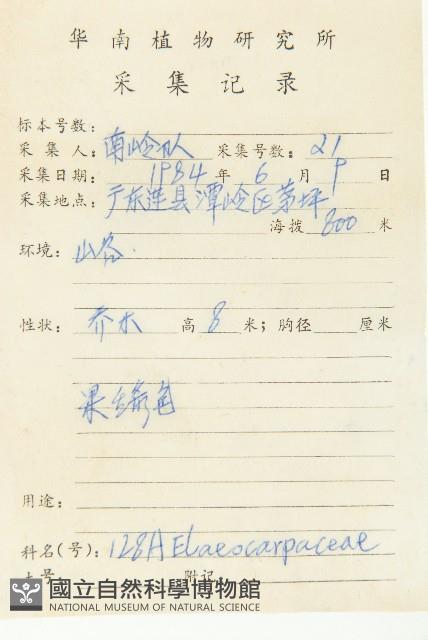 华南植物研究所
采集记录
标本号数:
采集人: 南岭队 采集号数: 21
采集日期: 1984年6月9日
采集地点: 广东连县潭岭区茅坪
海拔 800 米
环境: 山谷.
性状: 乔木 高 8 米; 胸径 厘米
果 绿色
用途:
科名(号): 128A Elaeocarpaceae
土号 附记
國立自然科學博物館
NATIONAL MUSEUM OF NATURAL SCIENCE